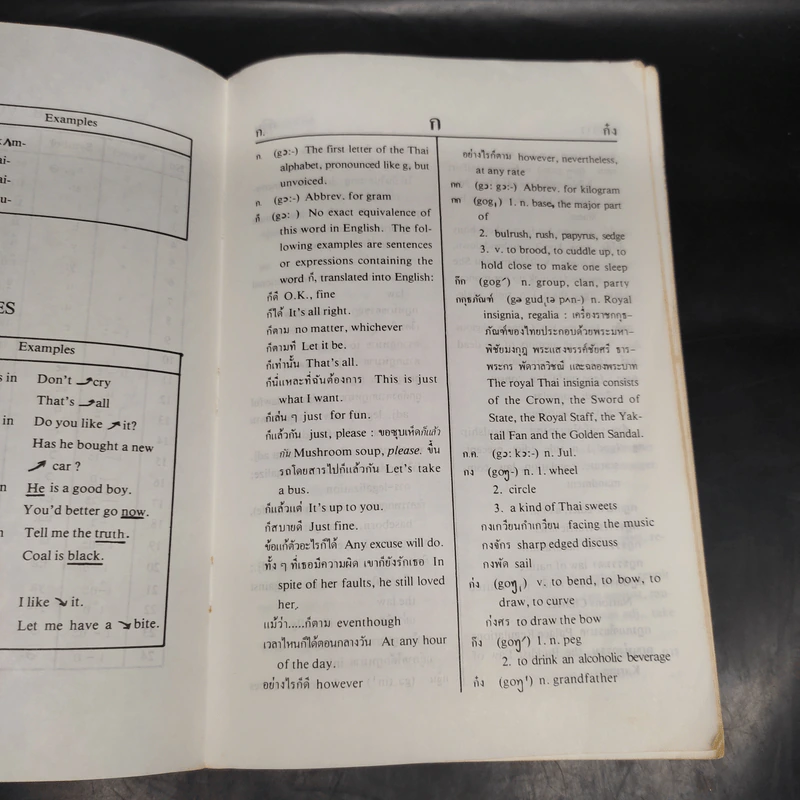 Examples
ʌm-
ai-
ai-
u-
ES
Examples
s in Don't cry
That's all
in Do you like it?
Has he bought a new
car ?
n He is a good boy.
You'd better go now.
n Tell me the truth.
Coal is black.
I like it.
Let me have a bite.
ก. ก ก๋ง
ก (gɔ:-) The first letter of the Thai
alphabet, pronounced like g, but
unvoiced.
ก (gɔ:-) Abbrev. for gram
ก็ (gɔ: ) No exact equivalence of
this word in English. The fol-
lowing examples are sentences
or expressions containing the
word ก็, translated into English:
ก็ดี O.K., fine
ก็ได้ It's all right.
ก็ตาม no matter, whichever
ก็ตามที Let it be.
ก็เท่านั้น That's all.
ก็นี่แหละที่ฉันต้องการ This is just
what I want.
ก็เล่น ๆ just for fun.
ก็แล้วกัน just, please : ขอซุบเห็ดก็แล้ว
กัน Mushroom soup, please. ขึ้น
รถโดยสารไปก็แล้วกัน Let's take
a bus.
ก็แล้วแต่ It's up to you.
ก็สบายดี Just fine.
ข้อแก้ตัวอะไรก็ได้ Any excuse will do.
ทั้ง ๆ ที่เธอมีความผิด เขาก็ยังรักเธอ In
spite of her faults, he still loved
her.
แม้ว่า.....ก็ตาม eventhough
เวลาไหนก็ได้ตอนกลางวัน At any hour
of the day.
อย่างไรก็ดี however
อย่างไรก็ตาม however, nevertheless,
at any rate
กก. (gɔ: gɔ:-) Abbrev. for kilogram
กก (gog) 1. n. base, the major part
of
2. bulrush, rush, papyrus, sedge
3. v. to brood, to cuddle up, to
hold close to make one sleep
ก๊ก (gog´) n. group, clan, party
กกุธภัณฑ์ (gə gud, tə pʌn-) n. Royal
insignia, regalia : เครื่องราชกกุธ-
ภัณฑ์ของไทยประกอบด้วยพระมหา-
พิชัยมงกุฎ พระแสงขรรค์ชัยศรี ธาร-
พระกร พัดวาลวิชนี และฉลองพระบาท
The royal Thai insignia consists
of the Crown, the Sword of
State, the Royal Staff, the Yak-
tail Fan and the Golden Sandal.
ก.ค. (gɔ: kɔ:-) n. Jul.
กง (goŋ-) n. 1. wheel
2. circle
3. a kind of Thai sweets
กงเกวียนกำเกวียน facing the music
กงจักร sharp edged discuss
กงพัด sail
ก่ง (goŋ) v. to bend, to bow, to
draw, to curve
ก่งศร to draw the bow
ก๊ง (goŋ´) 1. n. peg
2. to drink an alcoholic beverage
ก๋ง (goŋ) n. grandfather